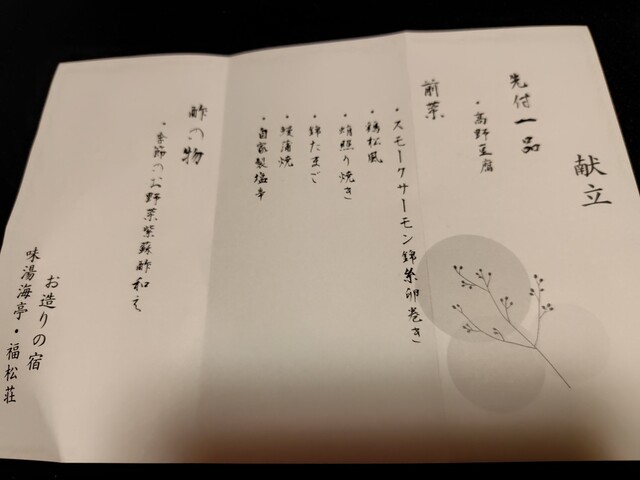 献立
先付一品
・高野豆腐
前菜
・スモークサーモン錦糸卵巻き
・鶏松風
・蛸照り焼き
・錦たまご
・鰻蒲焼
・自家製塩辛
酢の物
・季節のお野菜紫蘇酢和え
お造りの宿
味湯海亭・福松荘